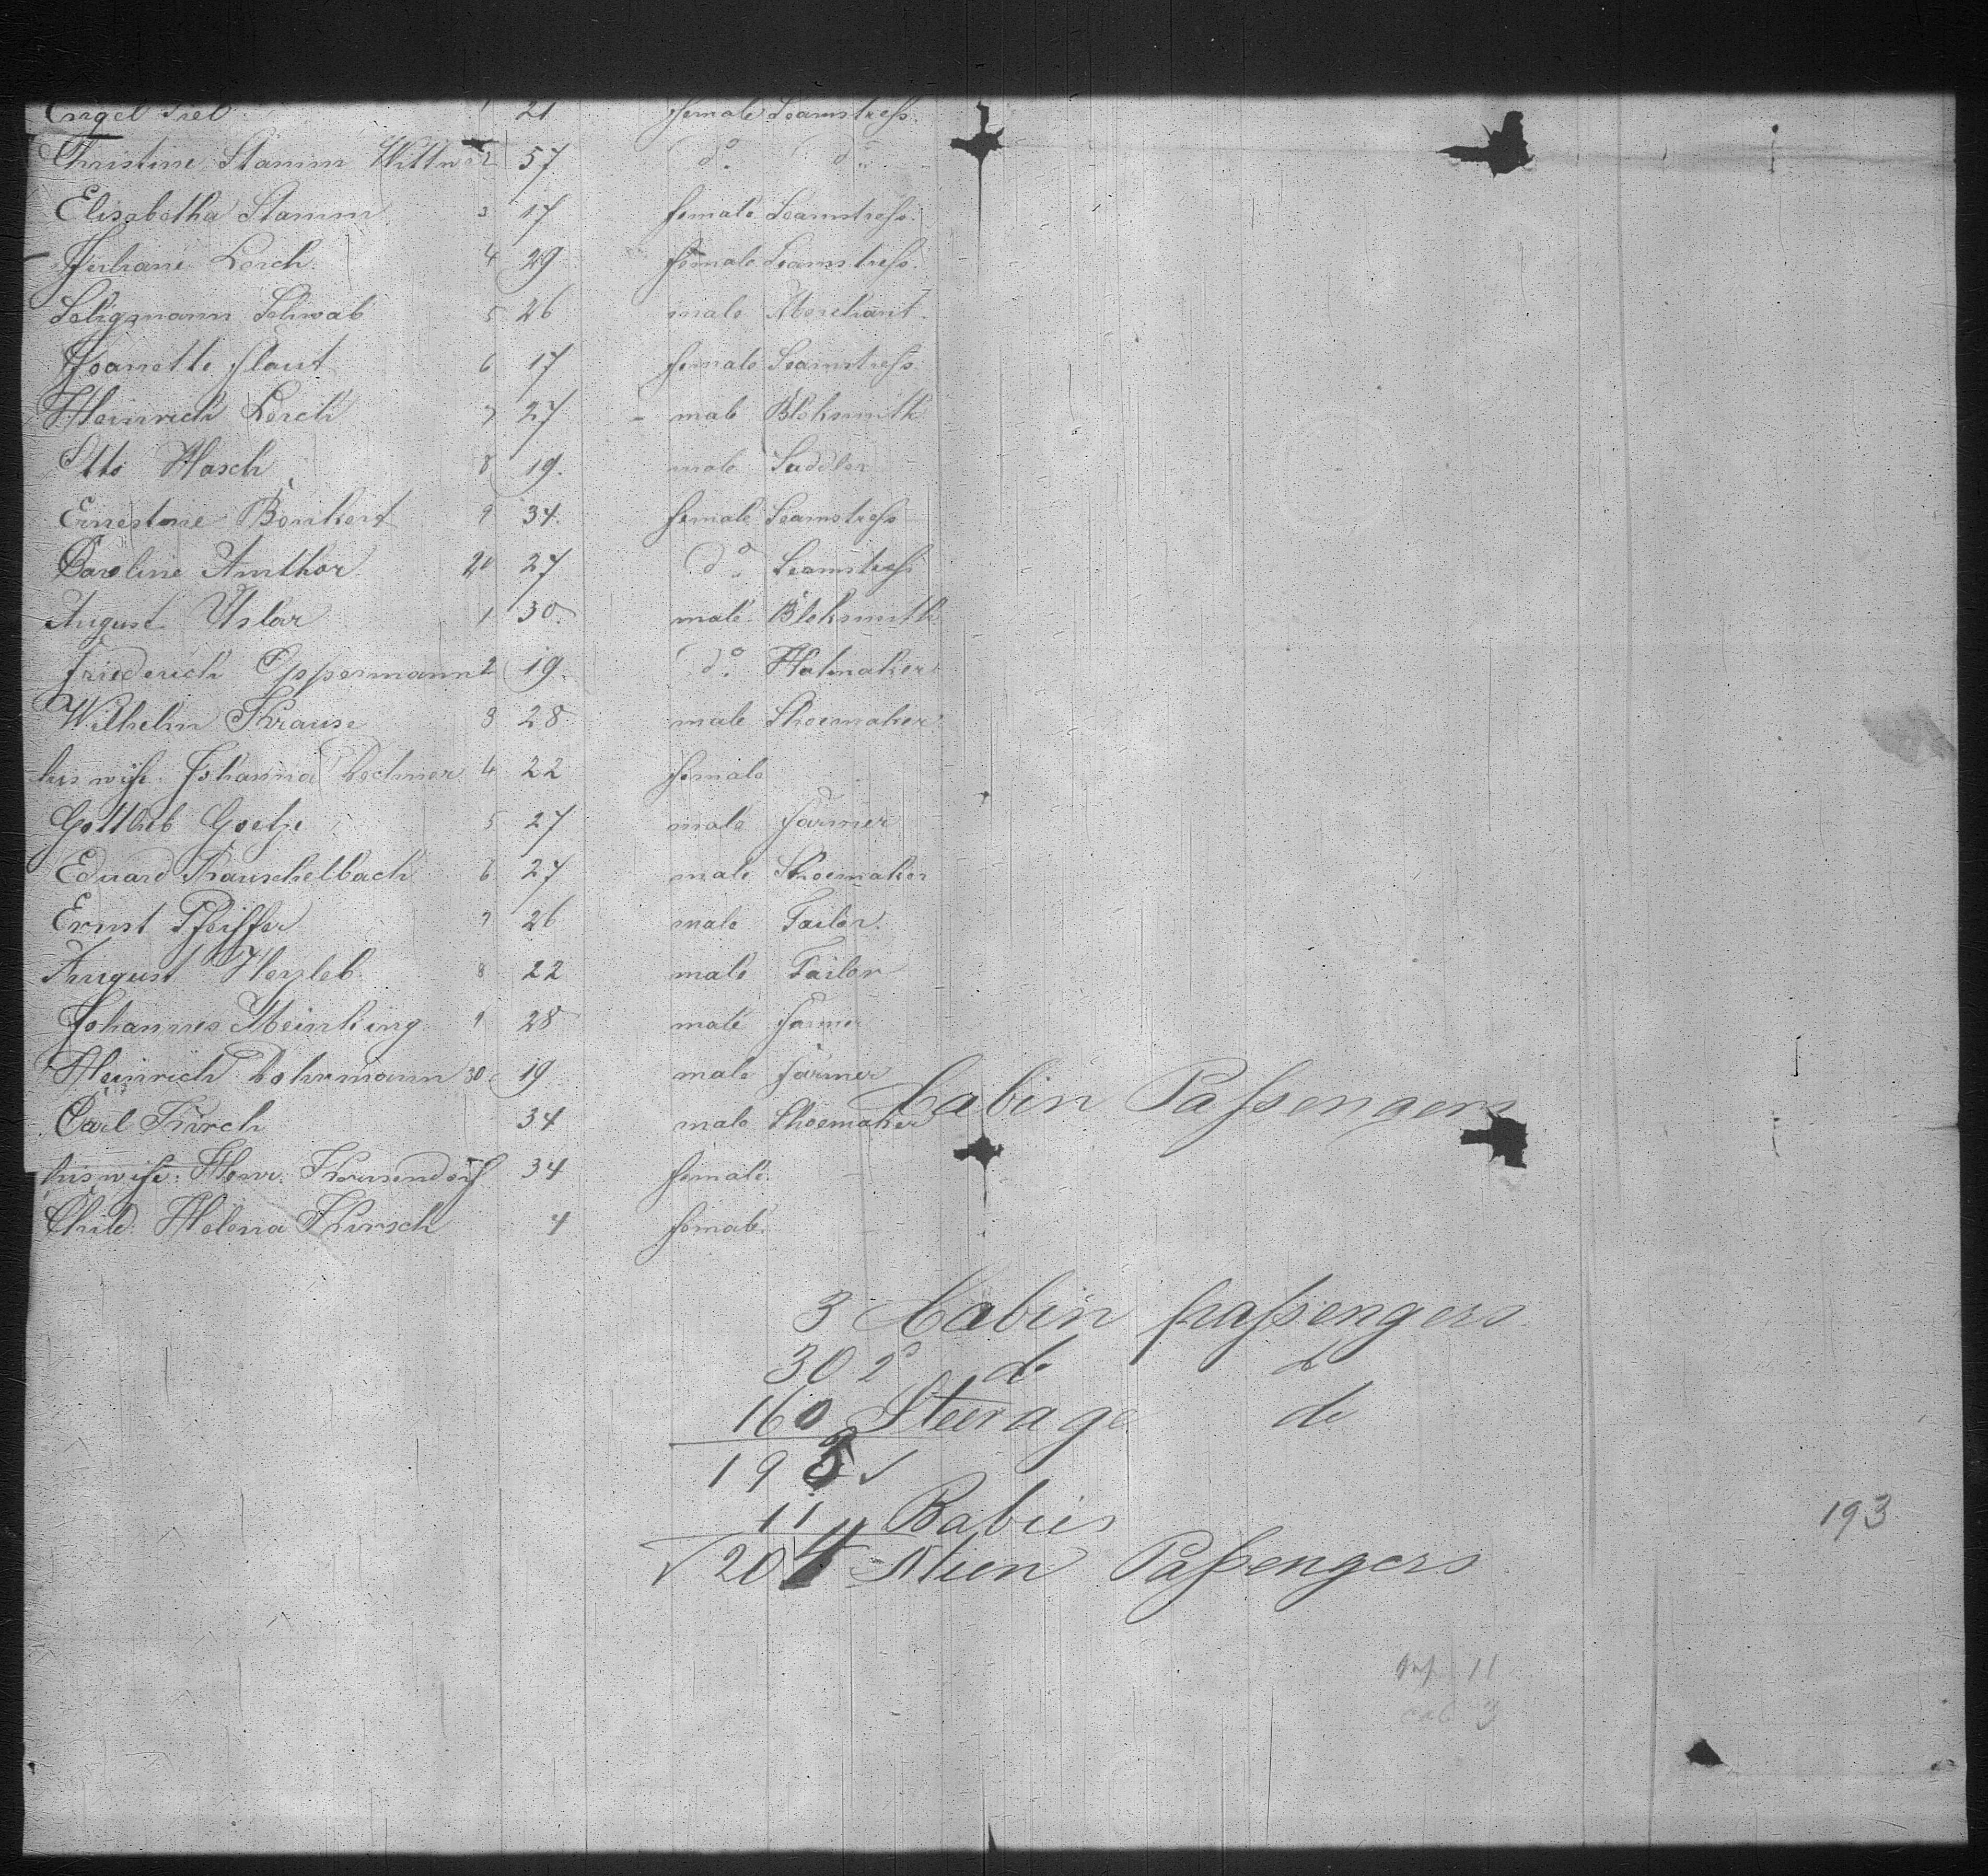 Engel 1 21 female Seamstress.
Christine Stamm Wittwe 12 57 do. do.
Elisabetha Stamm 3 17 female Seamstress.
Juliane Lerch 4 29 female Seamstress.
Seligmann Schwab 5 26 male Merchant.
Jeanette Plaut 6 17 female Seamstress
Heinrich Lerch 7 27 - male Blcksmith
Otto Hasch 8 19. male Saddler
Ernestine Bonkert 9 34. female Seamstress
Caroline Amthor 20 27 do. Seamstress
August Uslar 1 30. male Blcksmith
Friederich Oppermann 2 19. do. Hatmaker
Wilhelm Krause 3 28 male Shoemaker
his wife Johanna 4 22 female
Gottlieb Goetze 5 27 male farmer
Eduard Rauschelbach 6 27 male Shoemaker
Ernst Pfeiffer 7 26 male Tailor.
August Herzleb 8 22 male Tailor
Johannes Meinking 9 28 male farmer
Heinrich Dohrmann 30 19 male farmer
Cabin Passengers
Carl Kirch 34 male Shoemaker
his wife: Henr. 34 female.
Child: Helena Kirsch 4 female.
3 Cabin passengers.
30 2d do do
160 Steerage do
193 ✓
11 Babies
193
✓ 204 Alien Passengers
Inf 11
cab 3